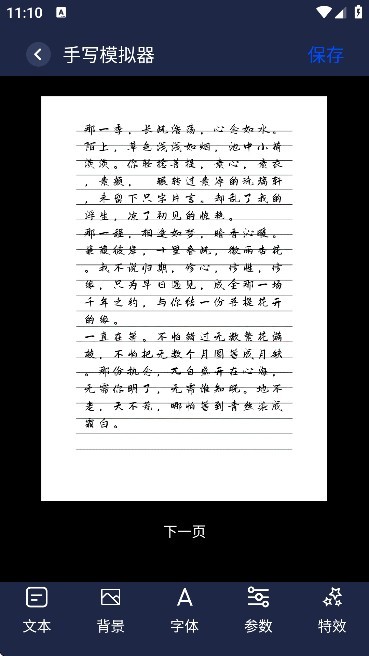 11:10
手写模拟器
保存
那一季，长风浩荡，心念如水。
陌上，草色浅浅如烟，池中小荷
淡淡。你轻捻菩提，素心，素衣
，素颜， 辗转过素净的流年轩
，未留下只字片言。却乱了我的
浮生，凉了初见的惊艳。
那一程，相逢如梦，暗香沁暖。
，我不说归期，修心，修睫，修
缘，只为早日遇见，成全那一场
千年之约，与你结一份菩提花开
的缘。
一直在等。不怕错过无数繁花满
枝，不怕把无数个月圆等成月缺
。那份执念，兀自盛开在心海，
无需你明了，无需谁知晓。地不
老，天不荒，哪怕等到青丝染成
霜白。
下一页
文本
背景
字体
参数
特效